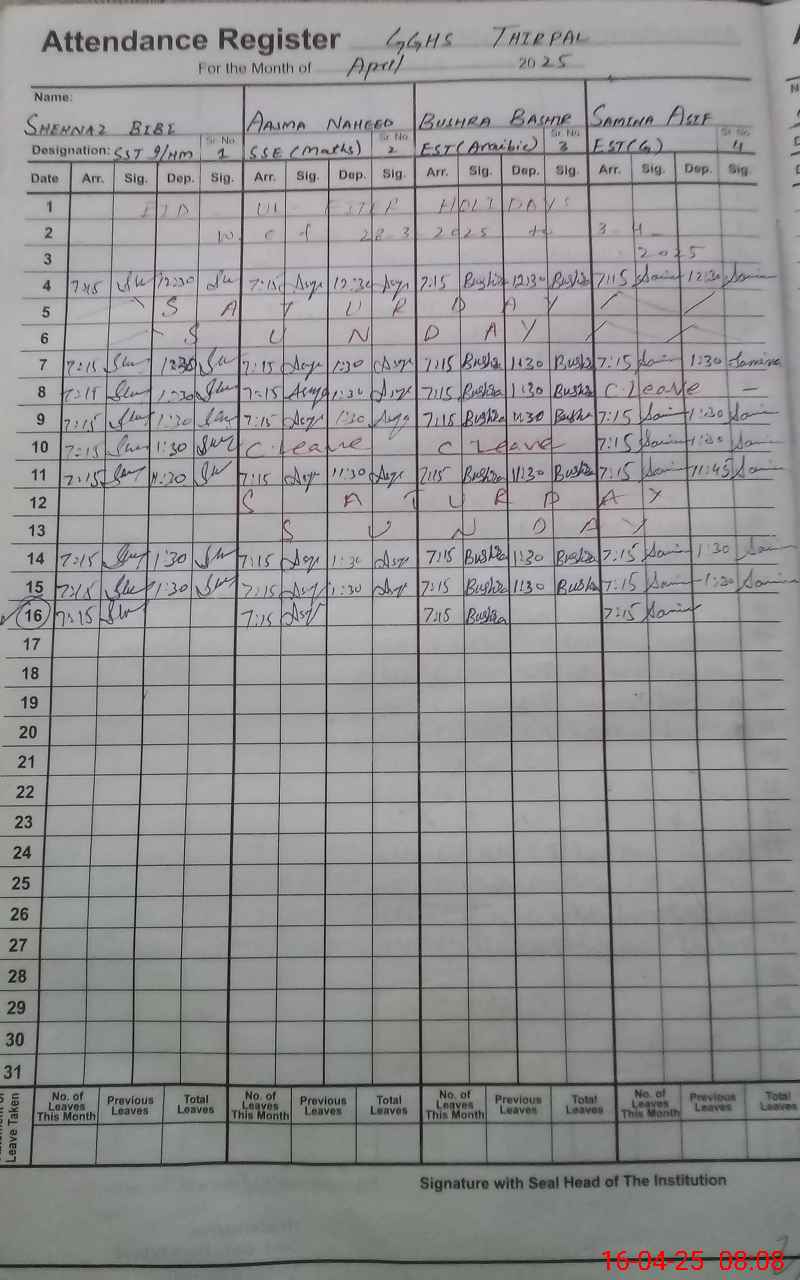 Attendance Register GGHS THIRPAL
For the Month of April 2025
Name:
SHEHNAZ BIBI AASMA NAHEED BUSHRA BASHIR SAMINA ASIF
Designation: SST 9/HM Sr. No. 1 SSE (Maths) Sr. No. 2 EST (Araibic) Sr. No. 3 EST (G) Sr. No. 4
Date Arr. Sig. Dep. Sig. Arr. Sig. Dep. Sig. Arr. Sig. Dep. Sig. Arr. Sig. Dep. Sig.
1 EID UL FITER HOLIDAYS
2 28 3 2025 to 3 4
3 2025
4 7:15 12:30 7:15 12:30 7:15 Bushra 12:30 Bushra 7:15 12:30
5 SATURDAY
6 SUNDAY
7 7:15 7:15 1:30 7:15 Bushra 1:30 Bushra 7:15 1:30 Samina
8 7:15 1:30 7:15 1:30 7:15 Bushra 1:30 Bushra C. Leave —
9 7:15 1:30 7:15 1:30 7:15 Bushra 1:30 Bushra 7:15 1:30
10 7:15 1:30 C. Leave C Leave 7:15 1:30
11 7:15 11:30 7:15 11:30 7:15 Bushra 11:30 Bushra 7:15 11:45
12 SATURDAY
13 SUNDAY
14 7:15 1:30 7:15 1:30 7:15 Bushra 1:30 Bushra 7:15 1:30
15 7:15 1:30 7:15 1:30 7:15 Bushra 1:30 Bushra 7:15 1:30
16 7:15 7:15 7:15 Bushra 7:15
17
18
19
20
21
22
23
24
25
26
27
28
29
30
31
Leave Taken No. of Leaves This Month Previous Leaves Total Leaves No. of Leaves This Month Previous Leaves Total Leaves No. of Leaves This Month Previous Leaves Total Leaves No. of Leaves This Month Previous Leaves Total Leaves
Signature with Seal Head of The Institution
16-04-25 08:08